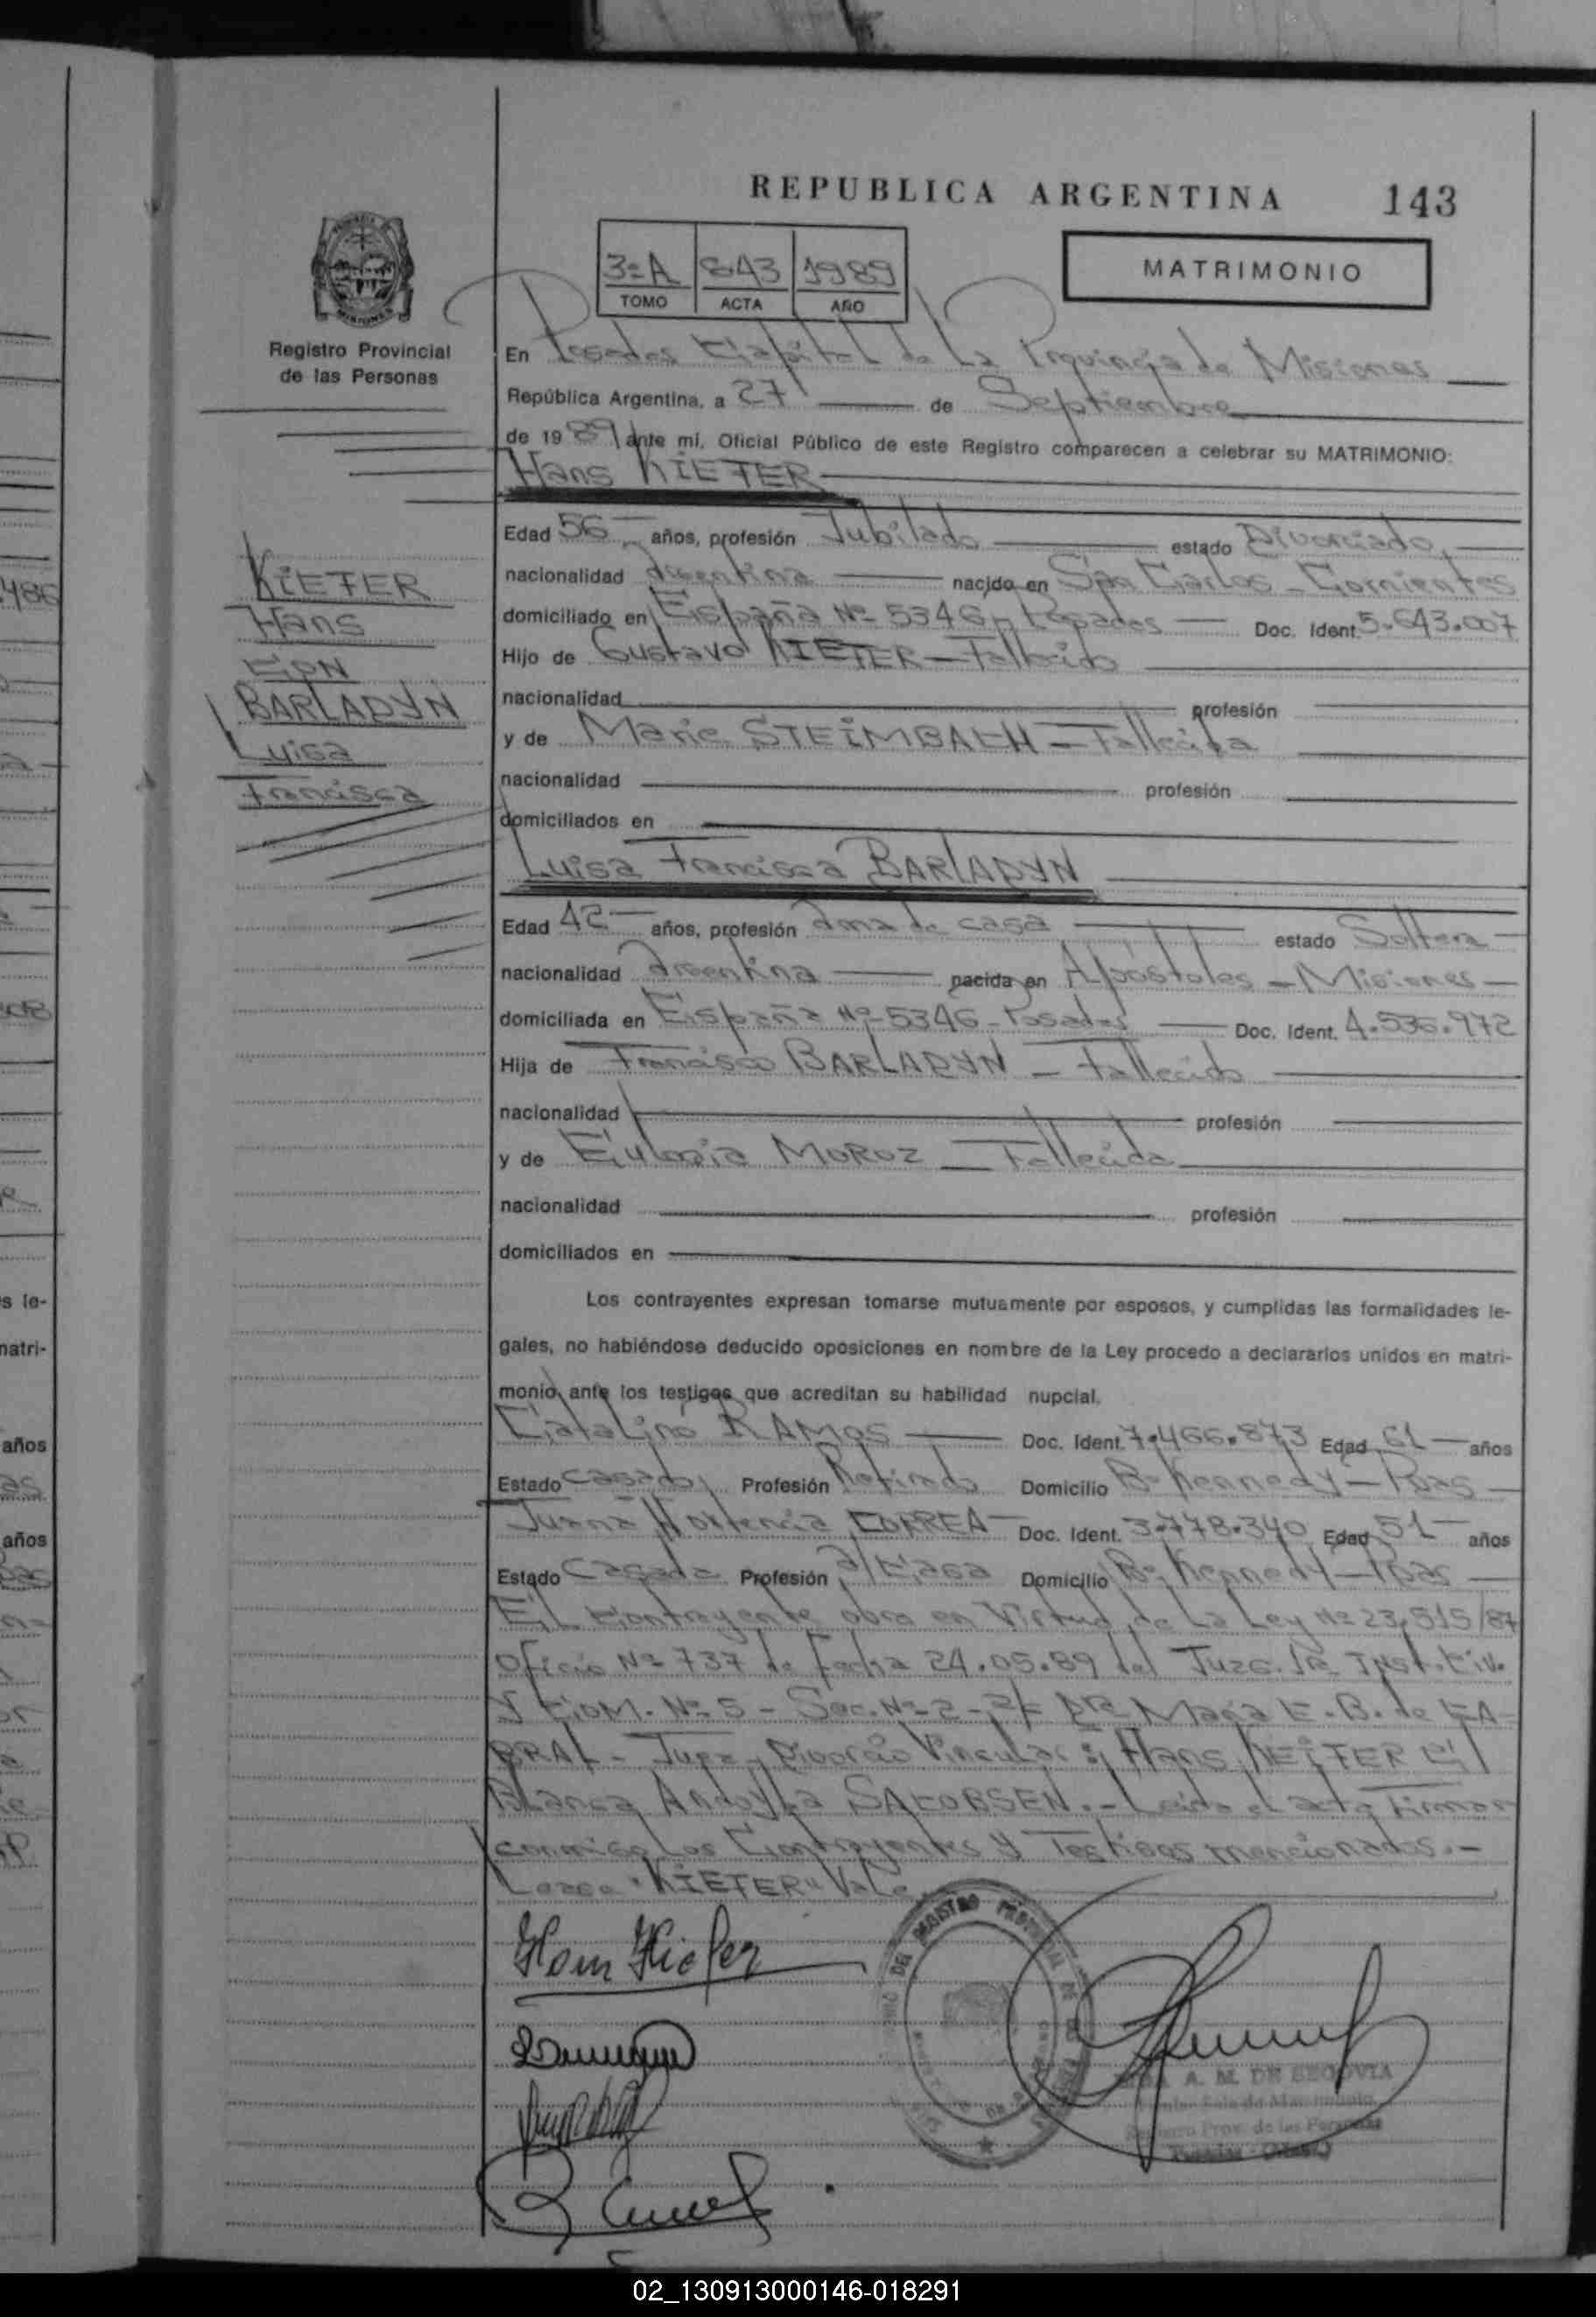 REPUBLICA ARGENTINA 143
MATRIMONIO
3=A 843 1989
TOMO ACTA AÑO
MISIONES
Registro Provincial
de las Personas
En Posadas Capital de La Provincia de Misiones
República Argentina, a 27 de Septiembre
de 1989 ante mí, Oficial Público de este Registro comparecen a celebrar su MATRIMONIO:
Hans KIEFER
Edad 56 años, profesión Jubilado estado Divorciado
nacionalidad Argentina nacido en San Carlos - Corrientes
domiciliado en España Nº 5346 - Posadas Doc. Ident. 5.643.007
Hijo de Gustavo KIEFER - Fallecido
nacionalidad profesión
y de Marie STEIMBACH - Fallecida
nacionalidad profesión
domiciliados en
Luisa Francisca BARLADYN
Edad 42 años, profesión Ama de casa estado Soltera
nacionalidad Argentina nacida en Apóstoles - Misiones
domiciliada en España Nº 5346 - Posadas Doc. Ident. 4.536.972
Hija de Francisco BARLADYN - Fallecido
nacionalidad profesión
y de Eulogia MOROZ - Fallecida
nacionalidad profesión
domiciliados en
KIEFER
Hans
CON
BARLADYN
Luisa
Francisca
Los contrayentes expresan tomarse mutuamente por esposos, y cumplidas las formalidades le-
gales, no habiéndose deducido oposiciones en nombre de la Ley procedo a declararlos unidos en matri-
monio, ante los testigos que acreditan su habilidad nupcial.
Catalino RAMOS Doc. Ident. 7.466.873 Edad 61 años
Estado casado Profesión Retirado Domicilio Bº Kennedy - Pdas
Juana Hortencia CORREA Doc. Ident. 3.778.340 Edad 51 años
Estado Casada Profesión a/Casa Domicilio Bº Kennedy - Pdas
El Contrayente obra en Virtud de La Ley Nº 23.515/87
Oficio Nº 737 de fecha 24.05.89 del Juzg. 1ra Inst. Civ.
y Com. Nº 5 - Sec. Nº 2 - Dra María E. B. de CA-
BRAL - Juez, Divorcio Vincular: Hans KEIFER c/
Blanca SACOBSEN. - Leída el acta Firman
conmigo Los Contrayentes y Testigos mencionados. -
KIEFER" Vale
Hans Kiefer
DEL REGISTRO PROVINCIAL DE
A. M. DE SEGOVIA
Prov. de las Personas
02_130913000146-018291